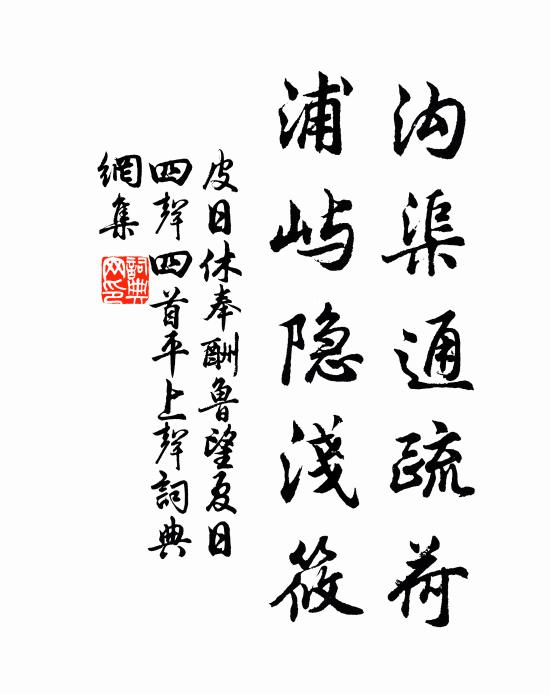 沟渠通疏荷
浦屿隐淺筱
皮日休奉酬魯望夏日
四聲四首平上聲詞典
網集
詞典網印